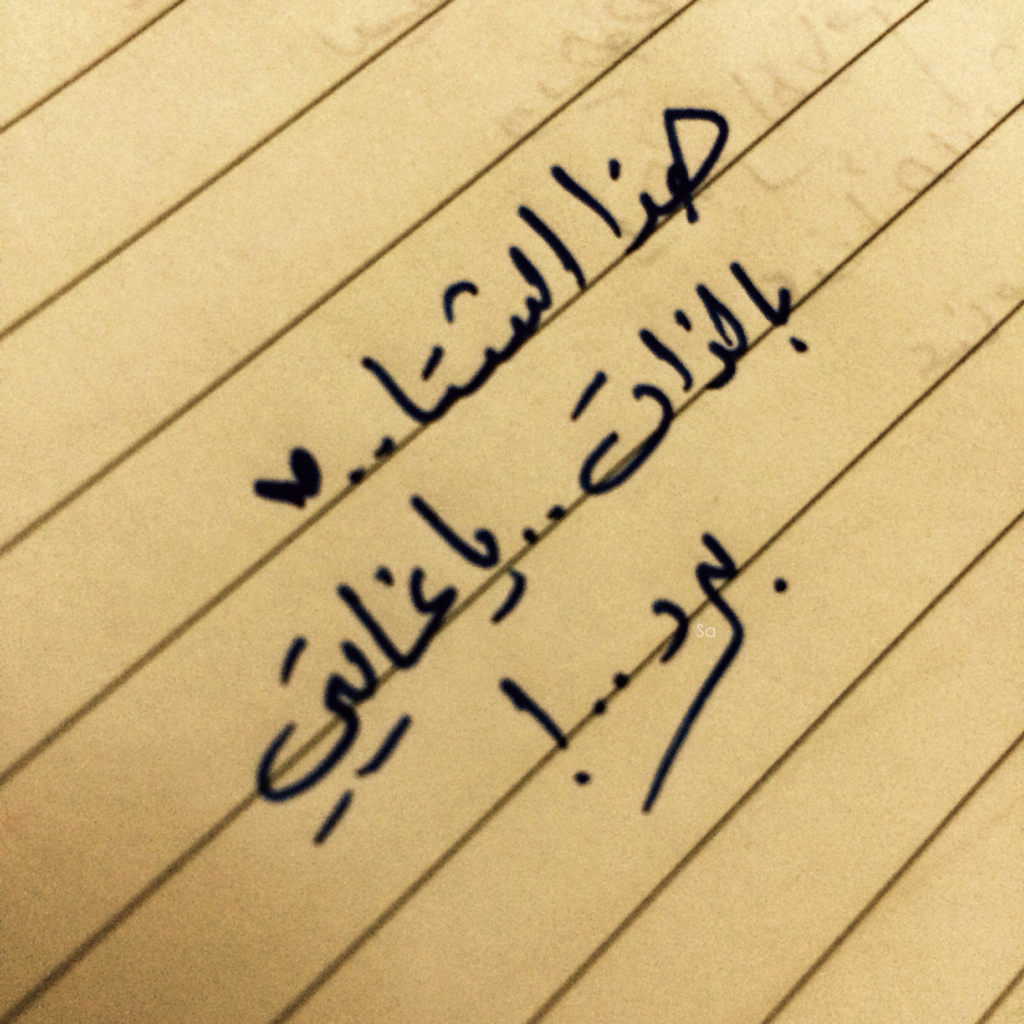 هذا الشتا.. ♥
بالذات.. يا غايتي
برد..!
Sa